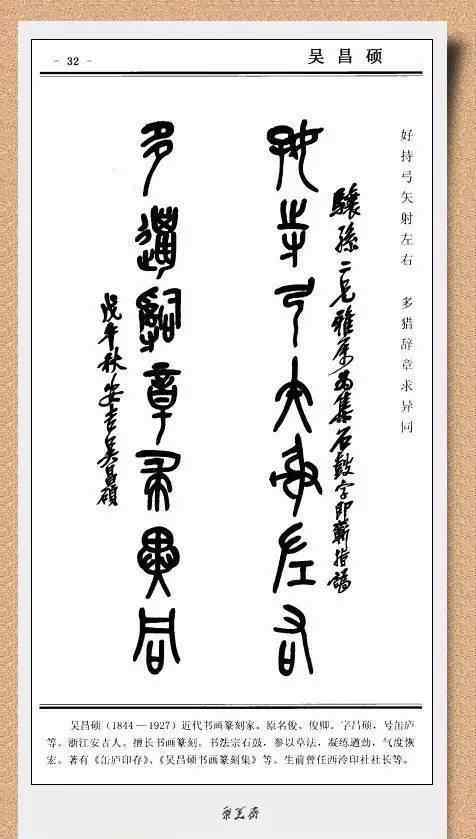 - 32 -
吴昌硕
好持弓矢射左右　多猎辞章求异同
驤孫二兄雅屬為集石鼓字即蘄指謬
好寺弓矢射左右
多邋辭章求異同
戊午秋安吉吴昌碩
吴昌硕（1844—1927）近代书画篆刻家。原名俊、俊卿。字昌硕，号缶庐
等。浙江安吉人。擅长书画篆刻。书法宗石鼓，参以草法，凝练遒劲，气度恢
宏。著有《缶庐印存》、《吴昌硕书画篆刻集》等。生前曾任西泠印社社长等。